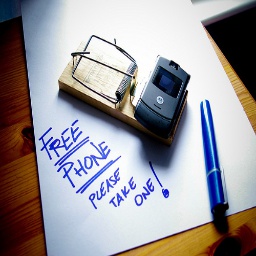 FREE
PHONE
PLEASE
TAKE
ONE!